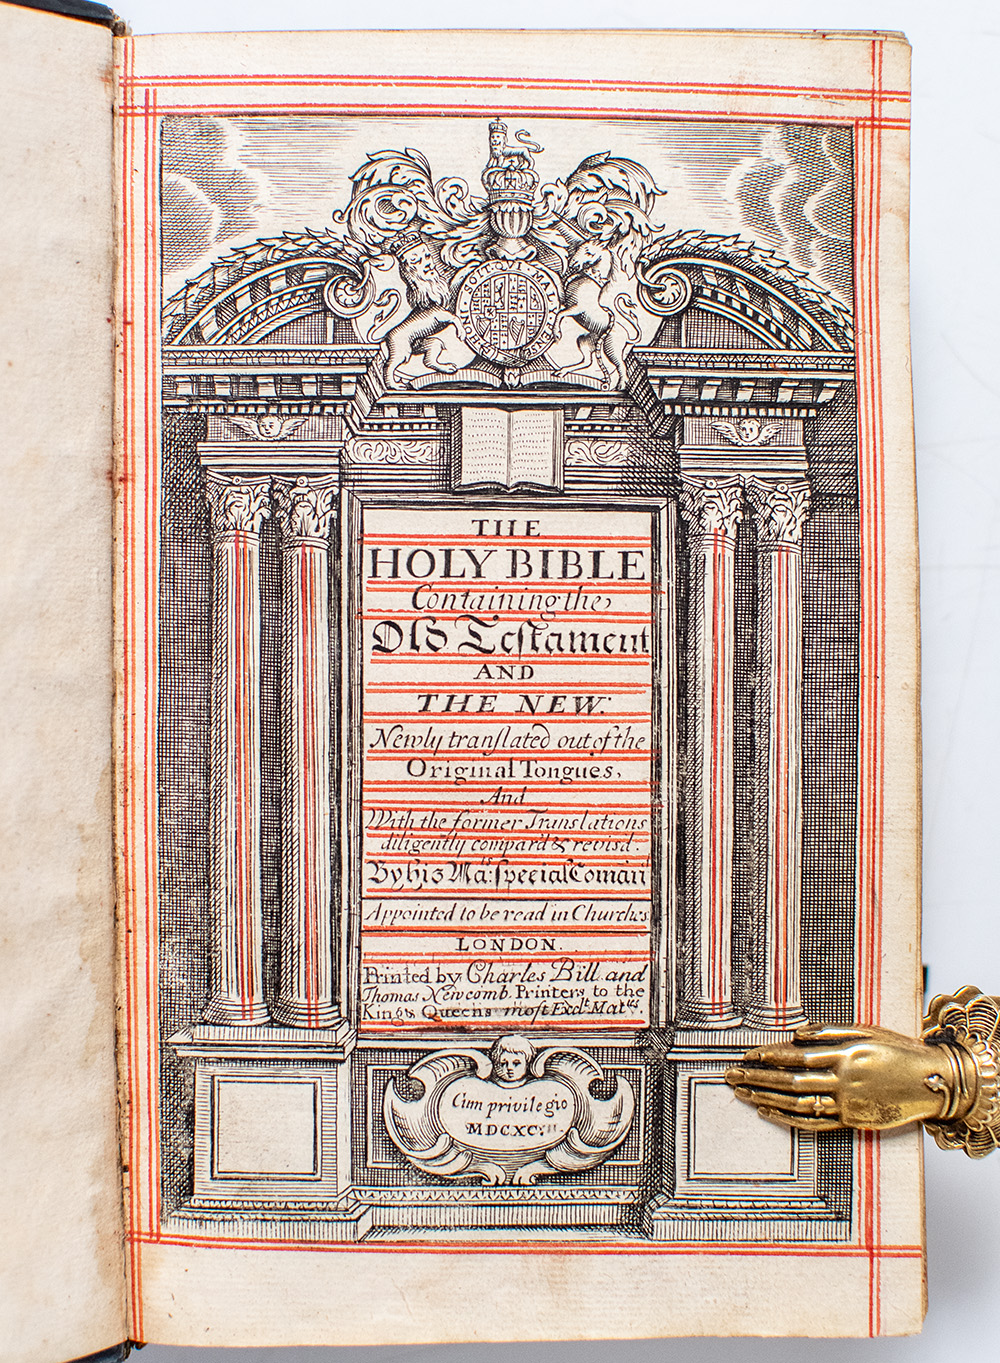 HONI SOIT QUI MAL Y PENSE
THE
HOLY BIBLE
Containing the
Old Testament
AND
THE NEW:
Newly translated out of the
Original Tongues,
And
With the former Translations
diligently compar'd & revis'd.
By his Ma:ts special Coman
Appointed to be read in Churches
LONDON.
Printed by Charles Bill and
Thomas Newcomb. Printers to the
Kings Queens most Exclt. Mattes.
Cum privilegio